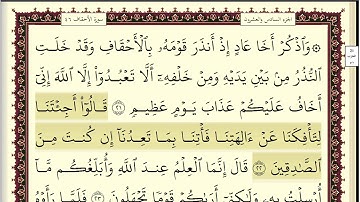 الجزء السادس والعشرون
سورة الأحقاف ٤٦
۞ وَٱذْكُرْ أَخَا عَادٍ إِذْ أَنذَرَ قَوْمَهُۥ بِٱلْأَحْقَافِ وَقَدْ خَلَتِ
ٱلنُّذُرُ مِنۢ بَيْنِ يَدَيْهِ وَمِنْ خَلْفِهِۦٓ أَلَّا تَعْبُدُوٓا۟ إِلَّا ٱللَّهَ إِنِّىٓ
أَخَافُ عَلَيْكُمْ عَذَابَ يَوْمٍ عَظِيمٍ ٢١ قَالُوٓا۟ أَجِئْتَنَا
لِتَأْفِكَنَا عَنْ ءَالِهَتِنَا فَأْتِنَا بِمَا تَعِدُنَآ إِن كُنتَ مِنَ
ٱلصَّٰدِقِينَ ٢٢ قَالَ إِنَّمَا ٱلْعِلْمُ عِندَ ٱللَّهِ وَأُبَلِّغُكُم مَّآ
أُرْسِلْتُ بِهِۦ وَلَٰكِنِّىٓ أَرَىٰكُمْ قَوْمًا تَجْهَلُونَ ٢٣ فَلَمَّا رَأَوْهُ